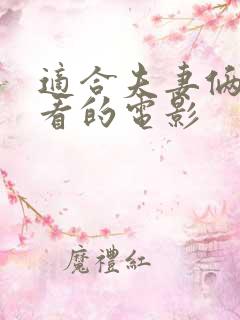 適合夫妻倆
看的電影
魔禮紅